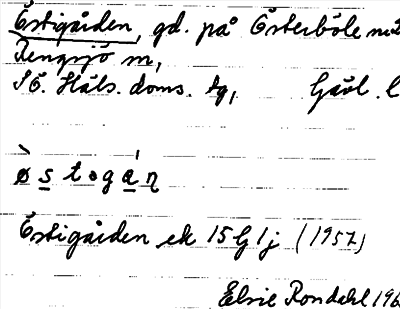 Östigården, gd. på Österböle
Rengsjö sn,
S Ö. Häls. doms. tg,    Gävl. l
østogan
Östigården ek 15 G 1 j (1957)
Elsie Rondahl 196